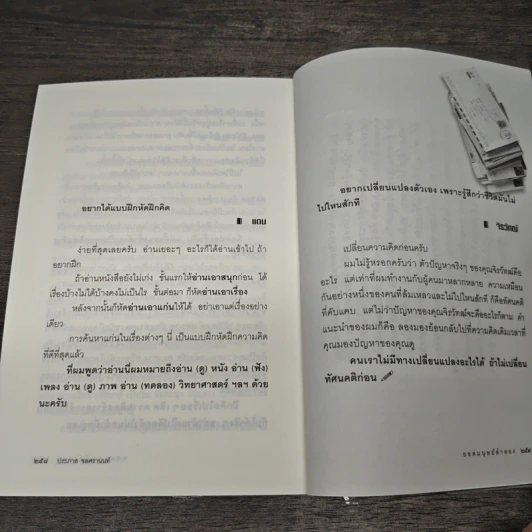 อยากได้แบบฝึกหัดฝึกคิด
แดน
ง่ายที่สุดเลยครับ อ่านเยอะๆ อะไรก็ได้อ่านเข้าไป ถ้า
อยากฝึก
ถ้าอ่านหนังสือยังไม่เก่ง ขั้นแรกให้อ่านเอาสนุกก่อน ได้
เรื่องบ้างไม่ได้บ้างคงไม่เป็นไร ขั้นต่อมา ก็หัดอ่านเอาเรื่อง
หลังจากนั้นก็หัดอ่านเอาแก่นให้ได้ อย่าเอาแต่เรื่องอย่าง
เดียว
การค้นหาแก่นในเรื่องต่างๆ นี่ เป็นแบบฝึกหัดฝึกความคิด
ที่ดีที่สุดแล้ว
ที่ผมพูดว่าอ่านนี่ผมหมายถึงอ่าน (ดู) หนัง อ่าน (ฟัง)
เพลง อ่าน (ดู) ภาพ อ่าน (ทดลอง) วิทยาศาสตร์ ฯลฯ ด้วย
นะครับ
๒๕๘ ประภาส ชลศรานนท์
อยากเปลี่ยนแปลงตัวเอง เพราะรู้สึกว่าชีวิตมันไม่
ไปไหนสักที
จิรวัฒน์
เปลี่ยนความคิดก่อนครับ
ผมไม่รู้หรอกครับว่า ตัวปัญหาจริงๆ ของคุณจิรวัฒน์คือ
อะไร แต่เท่าที่ผมทำงานกับผู้คนมาหลากหลาย ความเหมือน
กันอย่างหนึ่งของคนที่ล้มเหลวและไม่ไปไหนสักที ก็คือทัศนคติ
ที่คับแคบ แต่ไม่ว่าปัญหาของคุณจิรวัฒน์จะคืออะไรก็ตาม คำ
แนะนำของผมก็คือ ลองมองย้อนกลับไปที่ความคิดเดิมเวลาที่
คุณมองปัญหาของคุณดู
คนเราไม่มีทางเปลี่ยนแปลงอะไรได้ ถ้าไม่เปลี่ยน
ทัศนคติก่อน
ยอดมนุษย์ลำลอง